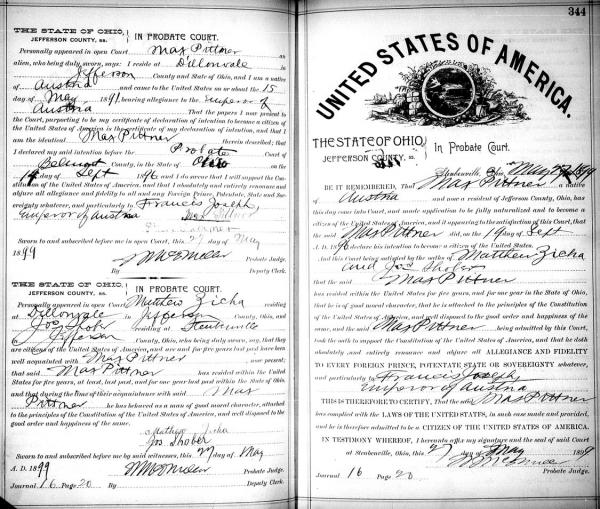 THE STATE OF OHIO, JEFFERSON COUNTY, ss. IN PROBATE COURT.
Personally appeared in open Court Max Pittner an
alien, who being duly sworn, says: I reside at Dillonvale
Jefferson County and State of Ohio, and I am a native
of Austria and came to the United States on or about the 15
day of May 1891, bearing allegiance to the Emperor of
Austria That the papers I now present to
the Court, purporting to be my certificate of declaration of intention to become a citizen of
the United States of America is the certificate of my declaration of intention, and that I
am the identical Max Pittner therein described; that
I declared my intention before the Probate Court of
Belmont County, in the State of Ohio on the
19 day of Sept 1896 and I do swear that I will support the Consti-
tution of the United States of America, and that I absolutely and entirely renounce and
abjure all allegiance and fidelity to all and every Foreign Prince, Potentate, State and Sov-
ereignty whatever, and particularly to Francis Joseph
Emperor of Austria Max Pittner
Sworn to and subscribed before me in open Court, this 27 day of May
1899 Probate Judge.
By Deputy Clerk.
THE STATE OF OHIO, JEFFERSON COUNTY, ss. IN PROBATE COURT.
Personally appeared in open Court Mathew Zicha residing
at Dillonvale in Jefferson County, Ohio, and
Jos Shober residing at Steubenville
Jefferson County, Ohio, who being duly sworn, say, that they
are citizens of the United States of America, and are and for five years last past have been
well acquainted with Max Pittner now present;
that said Max Pittner has resided within the United
States for five years, at least, last past, and for one year last past within the State of Ohio,
and that during the time of their acquaintance with said Max
Pittner he has behaved as a man of good moral character, attached
to the principles of the Constitution of the United States of America, and well disposed to the
good order and happiness of the same.
Mathew Zicha
Jos. Shober
Sworn to and subscribed before me by said witnesses, this 27 day of May
A. D. 1899 Probate Judge.
Journal 16 Page 20 By Deputy Clerk.
344
UNITED STATES OF AMERICA.
THE STATE OF OHIO, JEFFERSON COUNTY, ss. In Probate Court.
Steubenville, Ohio, May 27 1899
BE IT REMEMBERED, That Max Pittner a native
of Austria and now a resident of Jefferson County, Ohio, has
this day come into Court, and made application to be fully naturalized and to become a
citizen of the United States of America, and it appearing to the satisfaction of this Court, that
he said Max Pittner did, on the 19 day of Sept
A. D. 1896 declare his intention to become a citizen of the United States.
And this Court being satisfied by the oaths of Matthew Zicha
and Jos Shober
that the said Max Pittner
has resided within the United States for five years, and for one year in the State of Ohio, that
he is of good moral character, that he is attached to the principles of the Constitution
of the United States of America, and well disposed to the good order and happiness of the
same, and the said Max Pittner being admitted by this Court,
took the oath to support the Constitution of the United States of America, and that he doth
absolutely and entirely renounce and abjure all ALLEGIANCE AND FIDELITY
TO EVERY FOREIGN PRINCE, POTENTATE STATE OR SOVEREIGNTY whatever,
and particularly to Francis Joseph
Emperor of Austria
THIS IS THEREFORE TO CERTIFY, That the said Max Pittner
has complied with the LAWS OF THE UNITED STATES, in such case made and provided,
and he is therefore admitted to be a CITIZEN OF THE UNITED STATES OF AMERICA.
IN TESTIMONY WHEREOF, I hereunto affix my signature and the seal of said Court
at Steubenville, Ohio, this 27 day of May 1899
Probate Judge.
Journal 16 Page 20